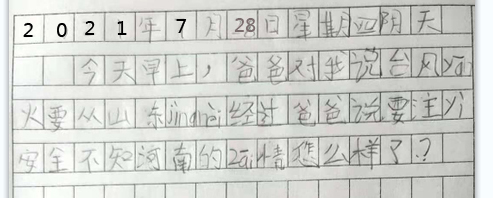 2021年7月28日星期四阴天
今天早上，爸爸对我说台风yān
火要从山东jìngnèi经过爸爸说要主yì
安全不知河南的zāi情怎么样了？